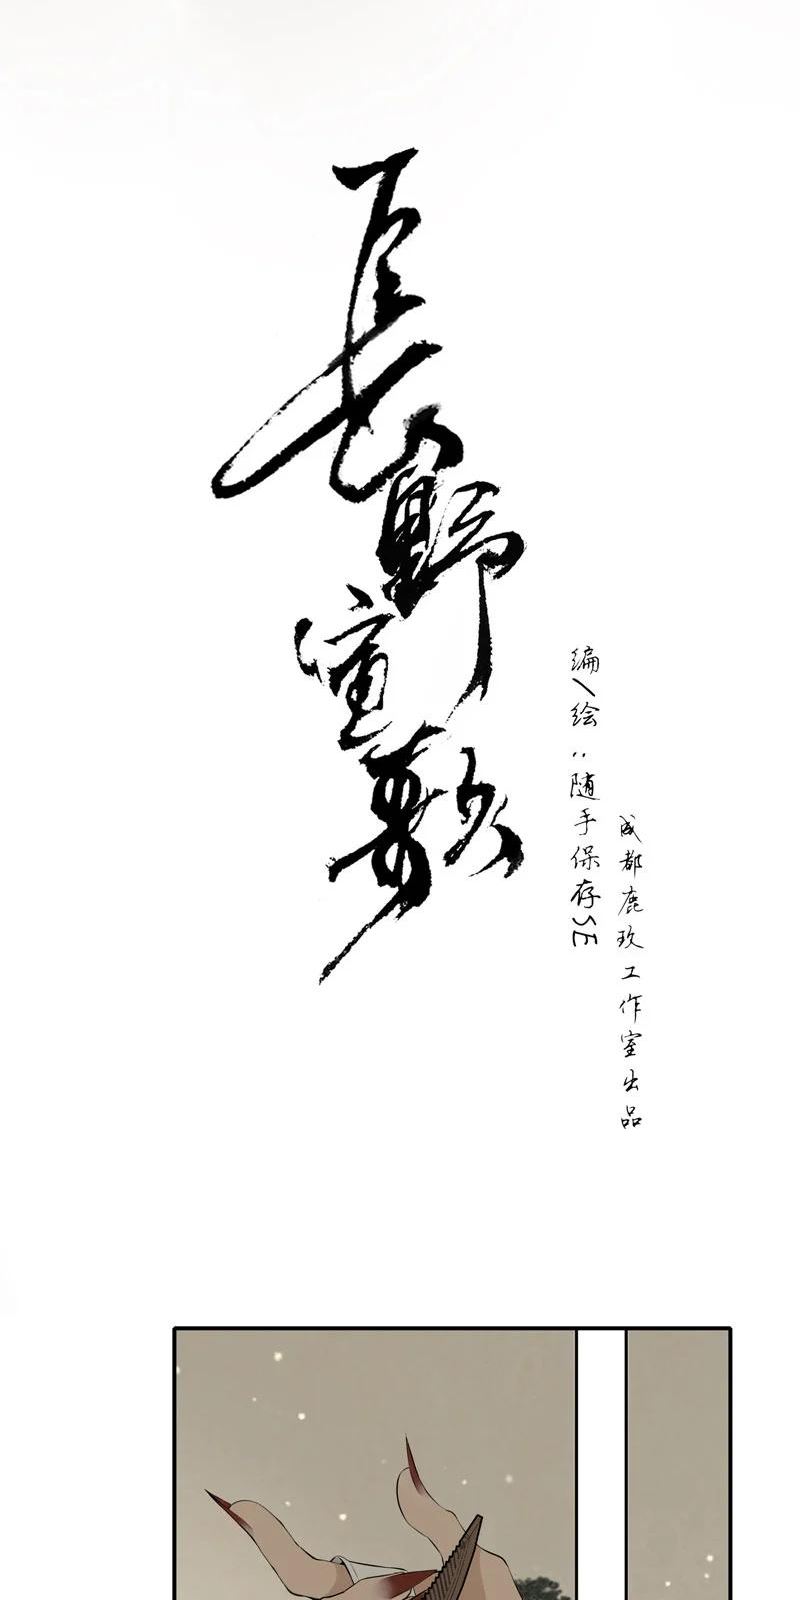 長野寞歌
编/绘：随手保存SE
成都鹿玖工作室出品